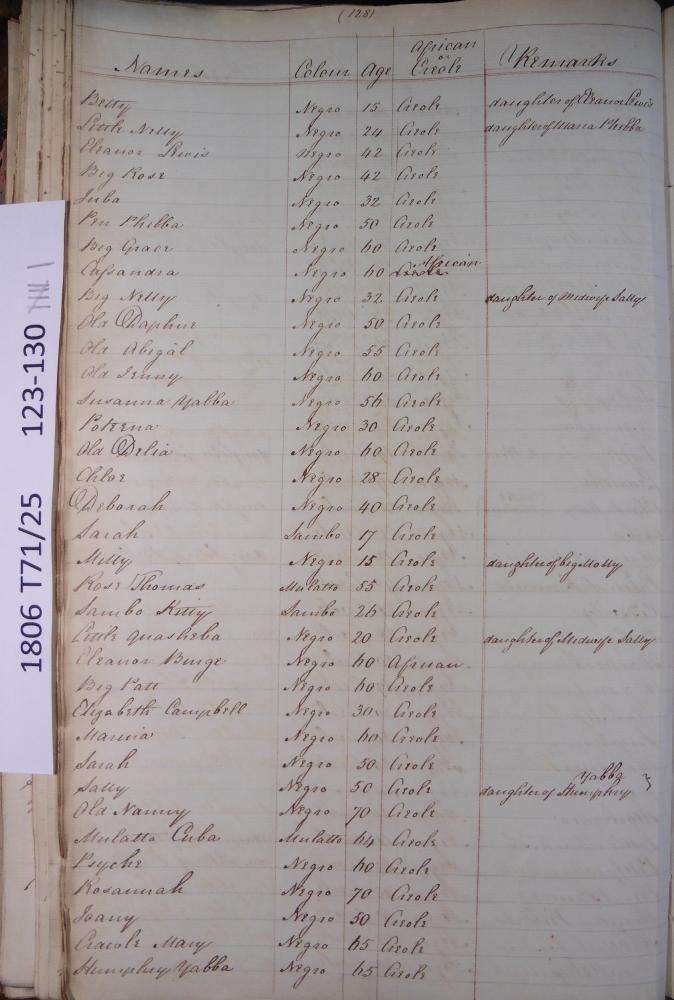 (128)
Names Colour Age African or Creole Remarks
Betty Negro 15 Creole daughter of Eleanor Lewis
Little Nelly Negro 24 Creole daughter of Maria Phibba
Eleanor Lewis Negro 42 Creole
Big Rose Negro 42 Creole
Juba Negro 32 Creole
Pen Phibba Negro 50 Creole
Big Grace Negro 60 Creole
Cassandra Negro 60 Creole African
Big Nelly Negro 32 Creole daughter of Midwife Sally
Old Daphne Negro 50 Creole
Old Abigal Negro 55 Creole
Old Jenny Negro 60 Creole
Susanna Yabba Negro 56 Creole
Negro 30 Creole
Old Delia Negro 60 Creole
Chloe Negro 28 Creole
Deborah Negro 40 Creole
Sarah Sambo 17 Creole
Milly Negro 15 Creole daughter of big Molly
Rose Thomas Mulatto 55 Creole
Sambo Kitty Sambo 26 Creole
Little Quasheba Negro 20 Creole daughter of Midwife Sally
Eleanor Binge Negro 60 African
Big Patt Negro 60 Creole
Elizabeth Campbell Negro 30 Creole
Marina Negro 60 Creole
Sarah Negro 50 Creole
Sally Negro 50 Creole daughter of Humphry Yabba
Old Nanny Negro 70 Creole
Mulatto Cuba Mulatto 64 Creole
Psyche Negro 60 Creole
Rosannah Negro 70 Creole
Joany Negro 50 Creole
Creole Mary Negro 65 Creole
Humphry Yabba Negro 65 Creole
1806 T71/25 123-130